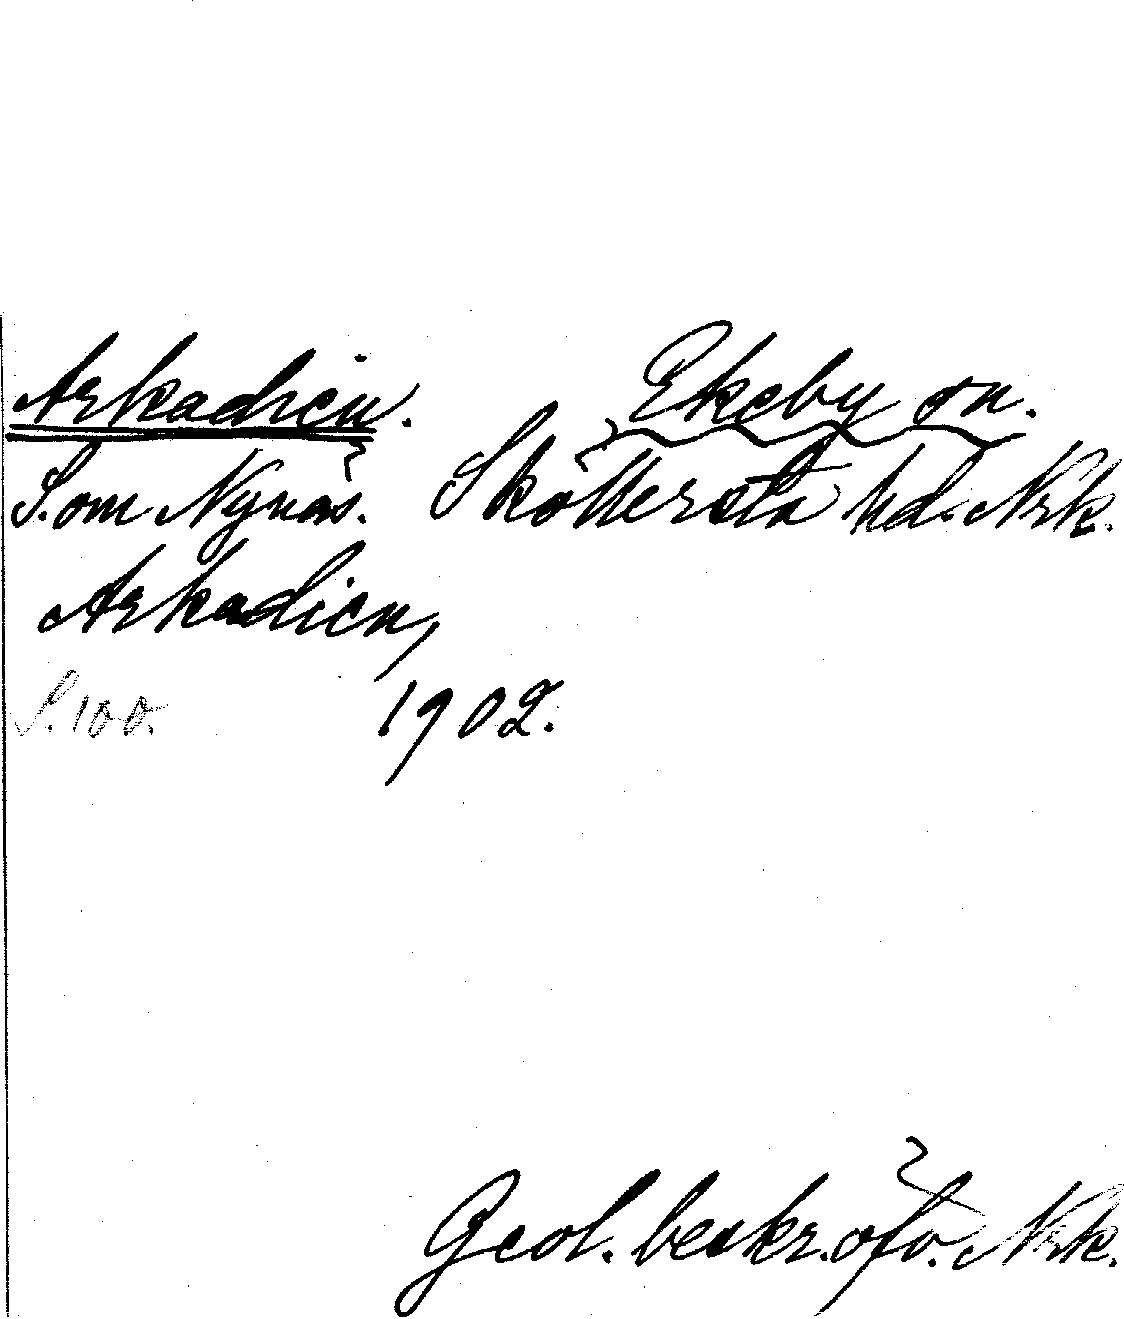 Arkadien. Ekeby sn.
S. om Nynäs. Sköllersta hd. Nrk.
Arkadien,
S. 100. 1902.
Geol. beskr. öfv. Nrk.